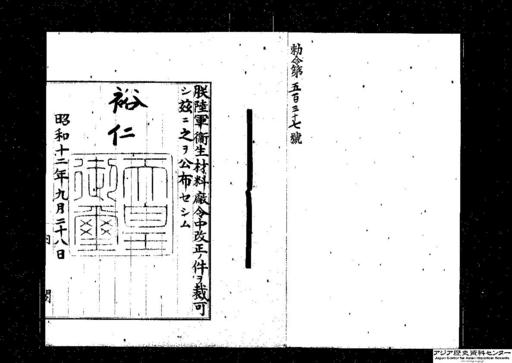 勅令第五百三十七號
朕陸軍衞生材料廠令中改正ノ件ヲ裁可
シ茲ニ之ヲ公布セシム
裕仁
天皇御璽
昭和十二年九月二十八日
アジア歴史資料センター
Japan Center for Asian Historical Records